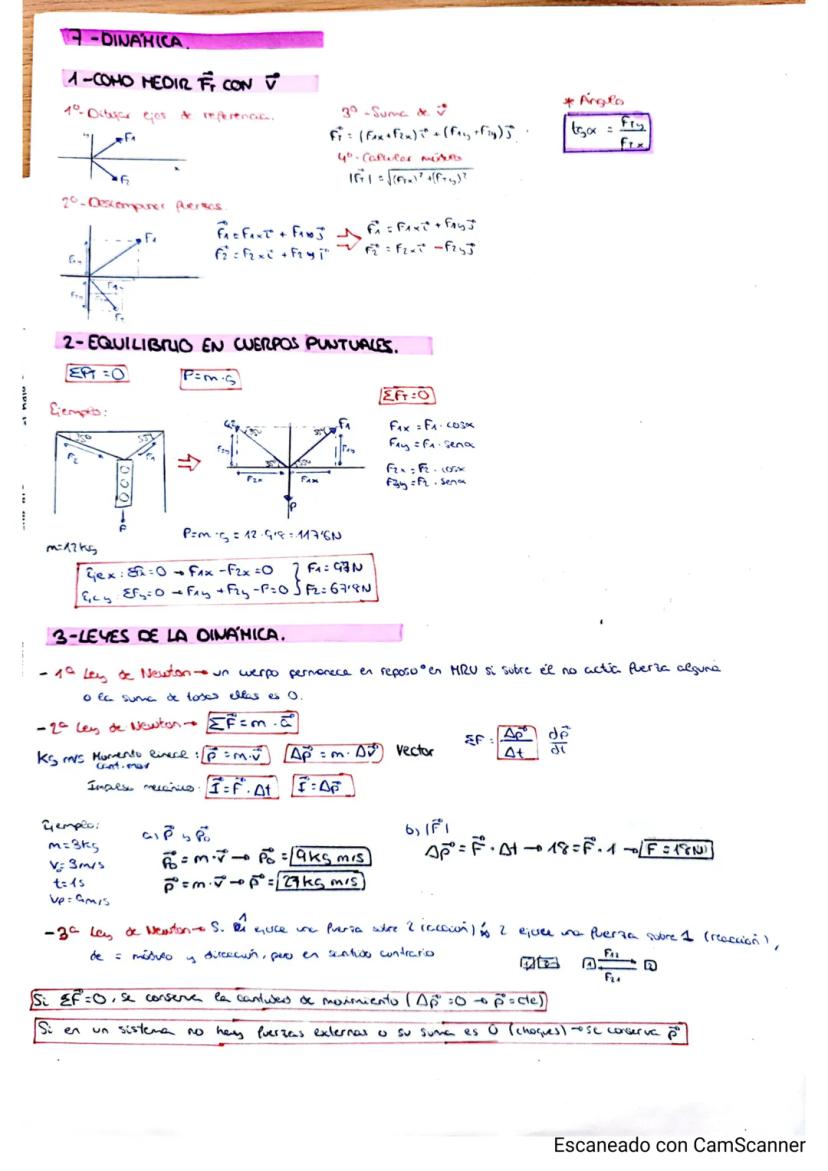 7-DINÁMICA.
1-COMO MEDIR F⃗T CON V⃗
1º- Dibujar ejes de referencia.
F1
F2
2º- Descomponer fuerzas.
F1
F⃗1 = F1x i⃗ + F1y j⃗ ⇒ F⃗1 = F1x i⃗ + F1y j⃗
F⃗2 = F2x i⃗ + F2y j⃗ ⇒ F⃗2 = F2x i⃗ - F2y j⃗
3º- Suma de v⃗
F⃗T = (F1x+F2x) i⃗ + (F1y+F2y) j⃗
4º- Calcular módulo
|F⃗T| = √(FTx)² + (FTy)²
* Ángulo
tgα = FTy/FTx
2-EQUILIBRIO EN CUERPOS PUNTUALES.
ΣFT = 0
P=m·g
ΣFT=0
Ejemplo:
F2
F1
P
m=12kg
F1
F2x
F1x
F1y
P
F1x = F1 · cosα
F1y = F1 · senα
F2x = F2 · cosα
F2y = F2 · senα
P=m·g = 12·9'8 = 117'6N
Eje x: ΣFx=0 → F1x - F2x = 0 } F1 = 97N
Eje y: ΣFy=0 → F1y + F2y - P=0 } F2= 67'8N
3-LEYES DE LA DINÁMICA.
- 1ª Ley de Newton → un cuerpo permanece en reposo o en MRU si sobre él no actúa fuerza alguna
o la suma de todas ellas es 0.
- 2ª Ley de Newton → ΣF⃗ = m · a⃗
ΣF = Δp⃗/Δt dp⃗/dt
Kg m/s Momento lineal: p⃗ = m·v⃗ Δp⃗ = m · Δv⃗ Vector
cant. mov
Impulso mecánico: I⃗ = F⃗ · Δt I⃗ = Δp⃗
Ejemplo:
m=3kg
V0=3m/s
t=1s
VF=9m/s
a) p⃗ y p⃗0
p⃗0 = m·v⃗ → p⃗0 = 9kg m/s
p⃗ = m·v⃗ → p⃗ = 27kg m/s
b) |F⃗|
Δp⃗ = F⃗ · Δt → 18 = F⃗ · 1 → F = 18N
- 3ª Ley de Newton → Si 1 ejerce una fuerza sobre 2 (acción), 2 ejerce una fuerza sobre 1 (reacción),
de = módulo y dirección, pero en sentido contrario
1 2 1 F12 2
F21
Si ΣF⃗=0, se conserva la cantidad de movimiento (Δp⃗ = 0 → p⃗ = cte)
Si en un sistema no hay fuerzas externas o su suma es 0 (choques) → se conserva p⃗
Escaneado con CamScanner